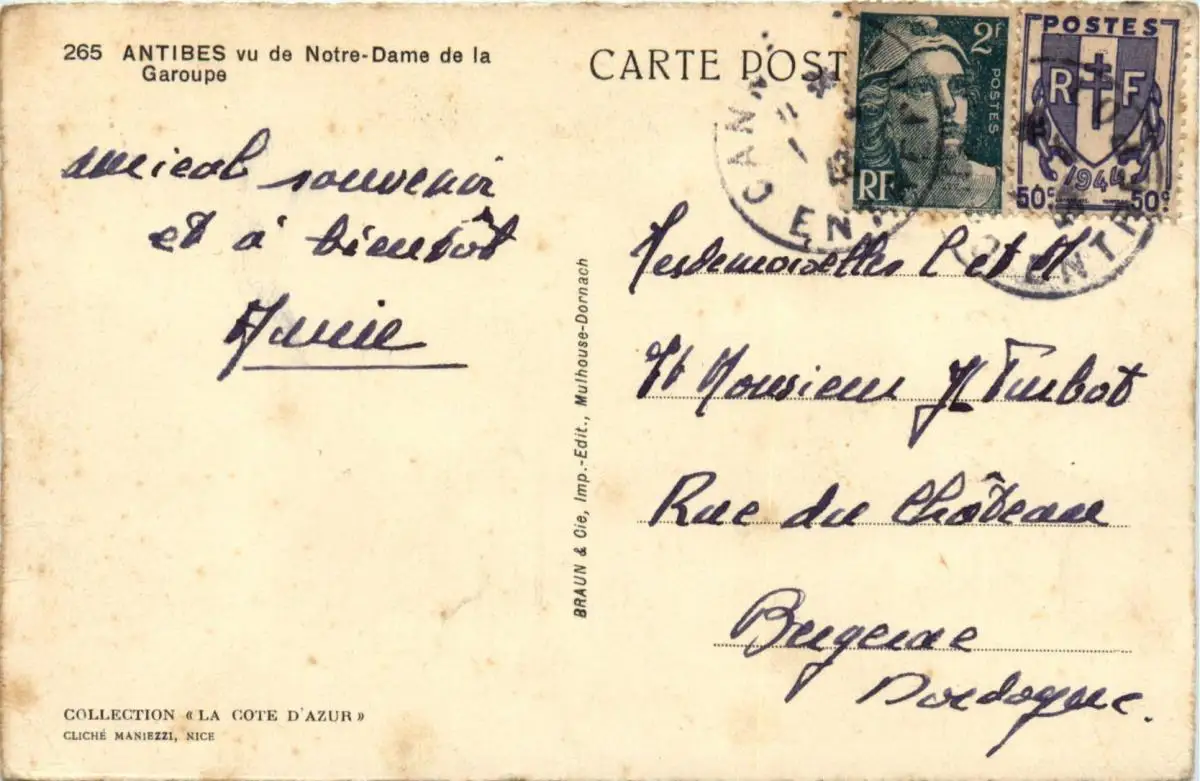 265 ANTIBES vu de Notre-Dame de la
Garoupe
CARTE POST
2F
POSTES
RF
POSTES
R F
1944
50c 50c
CANN
EN
ENTR
amical souvenir
et à bientôt
BRAUN & Cie, Imp.-Edit., Mulhouse-Dornach
Mesdemoiselles et M
Et Monsieur Turbot
Rue du Château
Bergerac
Dordogne.
COLLECTION « LA COTE D'AZUR »
CLICHÉ MANIEZZI, NICE